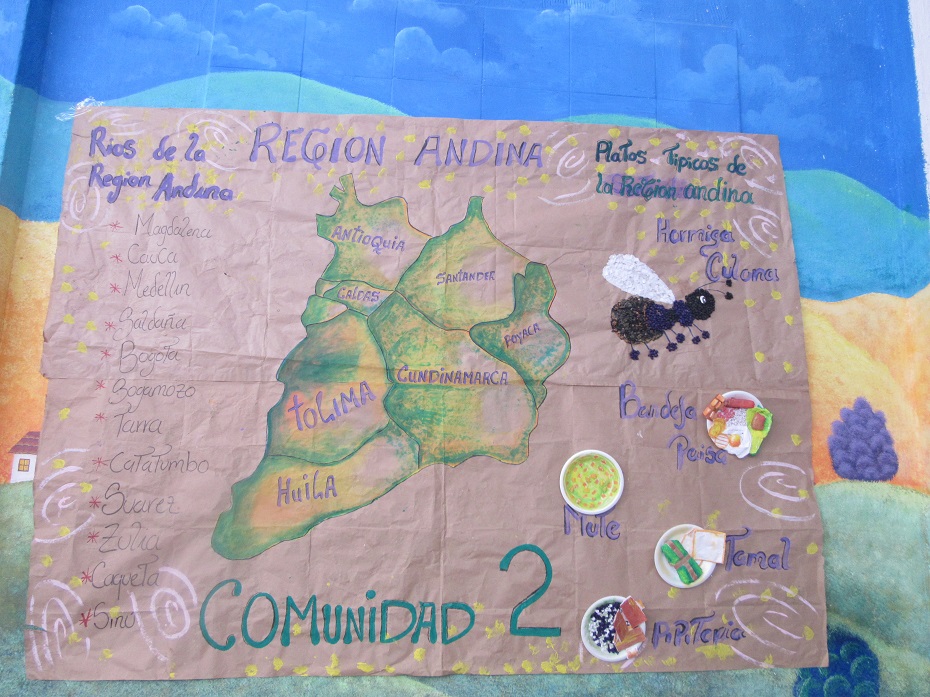 REGION ANDINA
Rios de la
Region Andina
* Magdalena
* Cauca
* Medellin
* Saldaña
* Bogota
* Sogamozo
* Tarra
* Catatumbo
* Suarez
* Zulia
* Caqueta
* Sinu
ANTIOQUIA
SANTANDER
CALDAS
BOYACA
CUNDINAMARCA
TOLIMA
HUILA
Platos Tipicos de
la Region andina
Hormiga
Culona
Bandeja
Paisa
Mute
Tamal
Pipitoria
COMUNIDAD 2